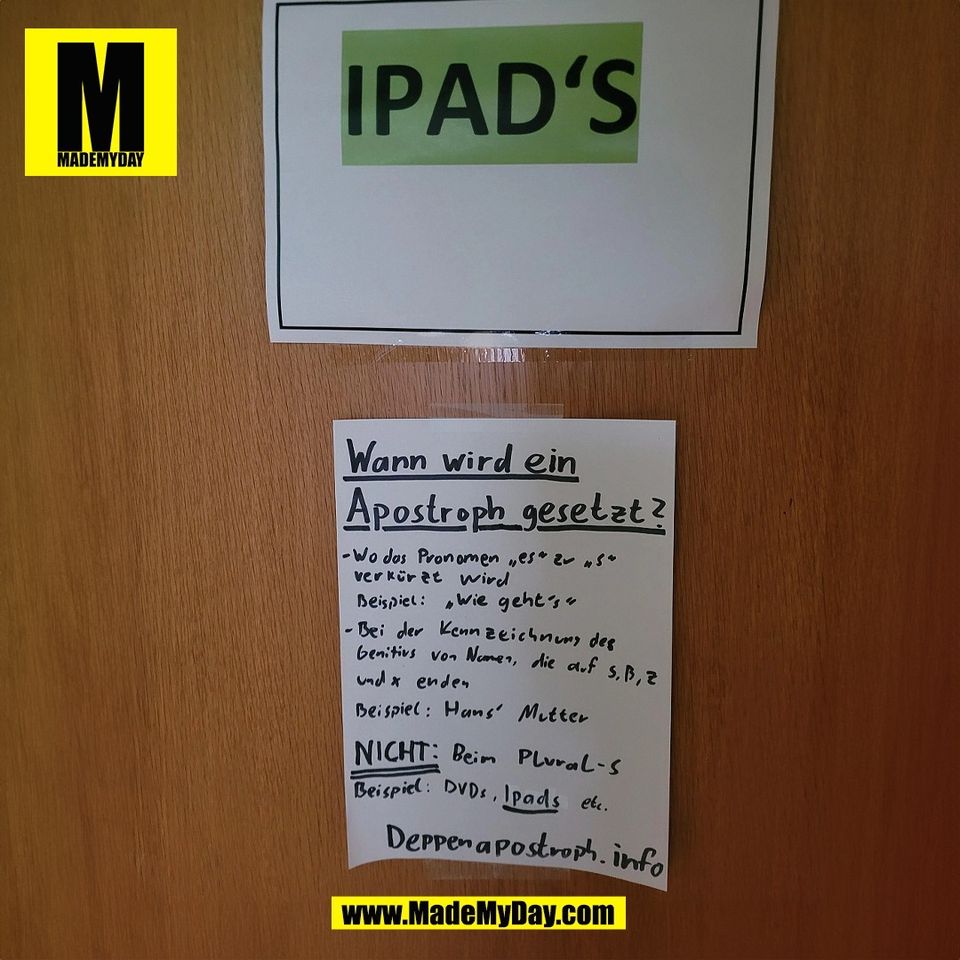 M
MADEMYDAY
IPAD‘S
Wann wird ein
Apostroph gesetzt?
- Wo das Pronomen „es“ zu „s“
verkürzt wird
Beispiel: „Wie geht's“
- Bei der Kennzeichnung des
Genitivs von Namen, die auf s, ß, z
und x enden
Beispiel: Hans' Mutter
NICHT: Beim Plural-s
Beispiel: DVDs, Ipads etc.
Deppenapostroph.info
www.MadeMyDay.com